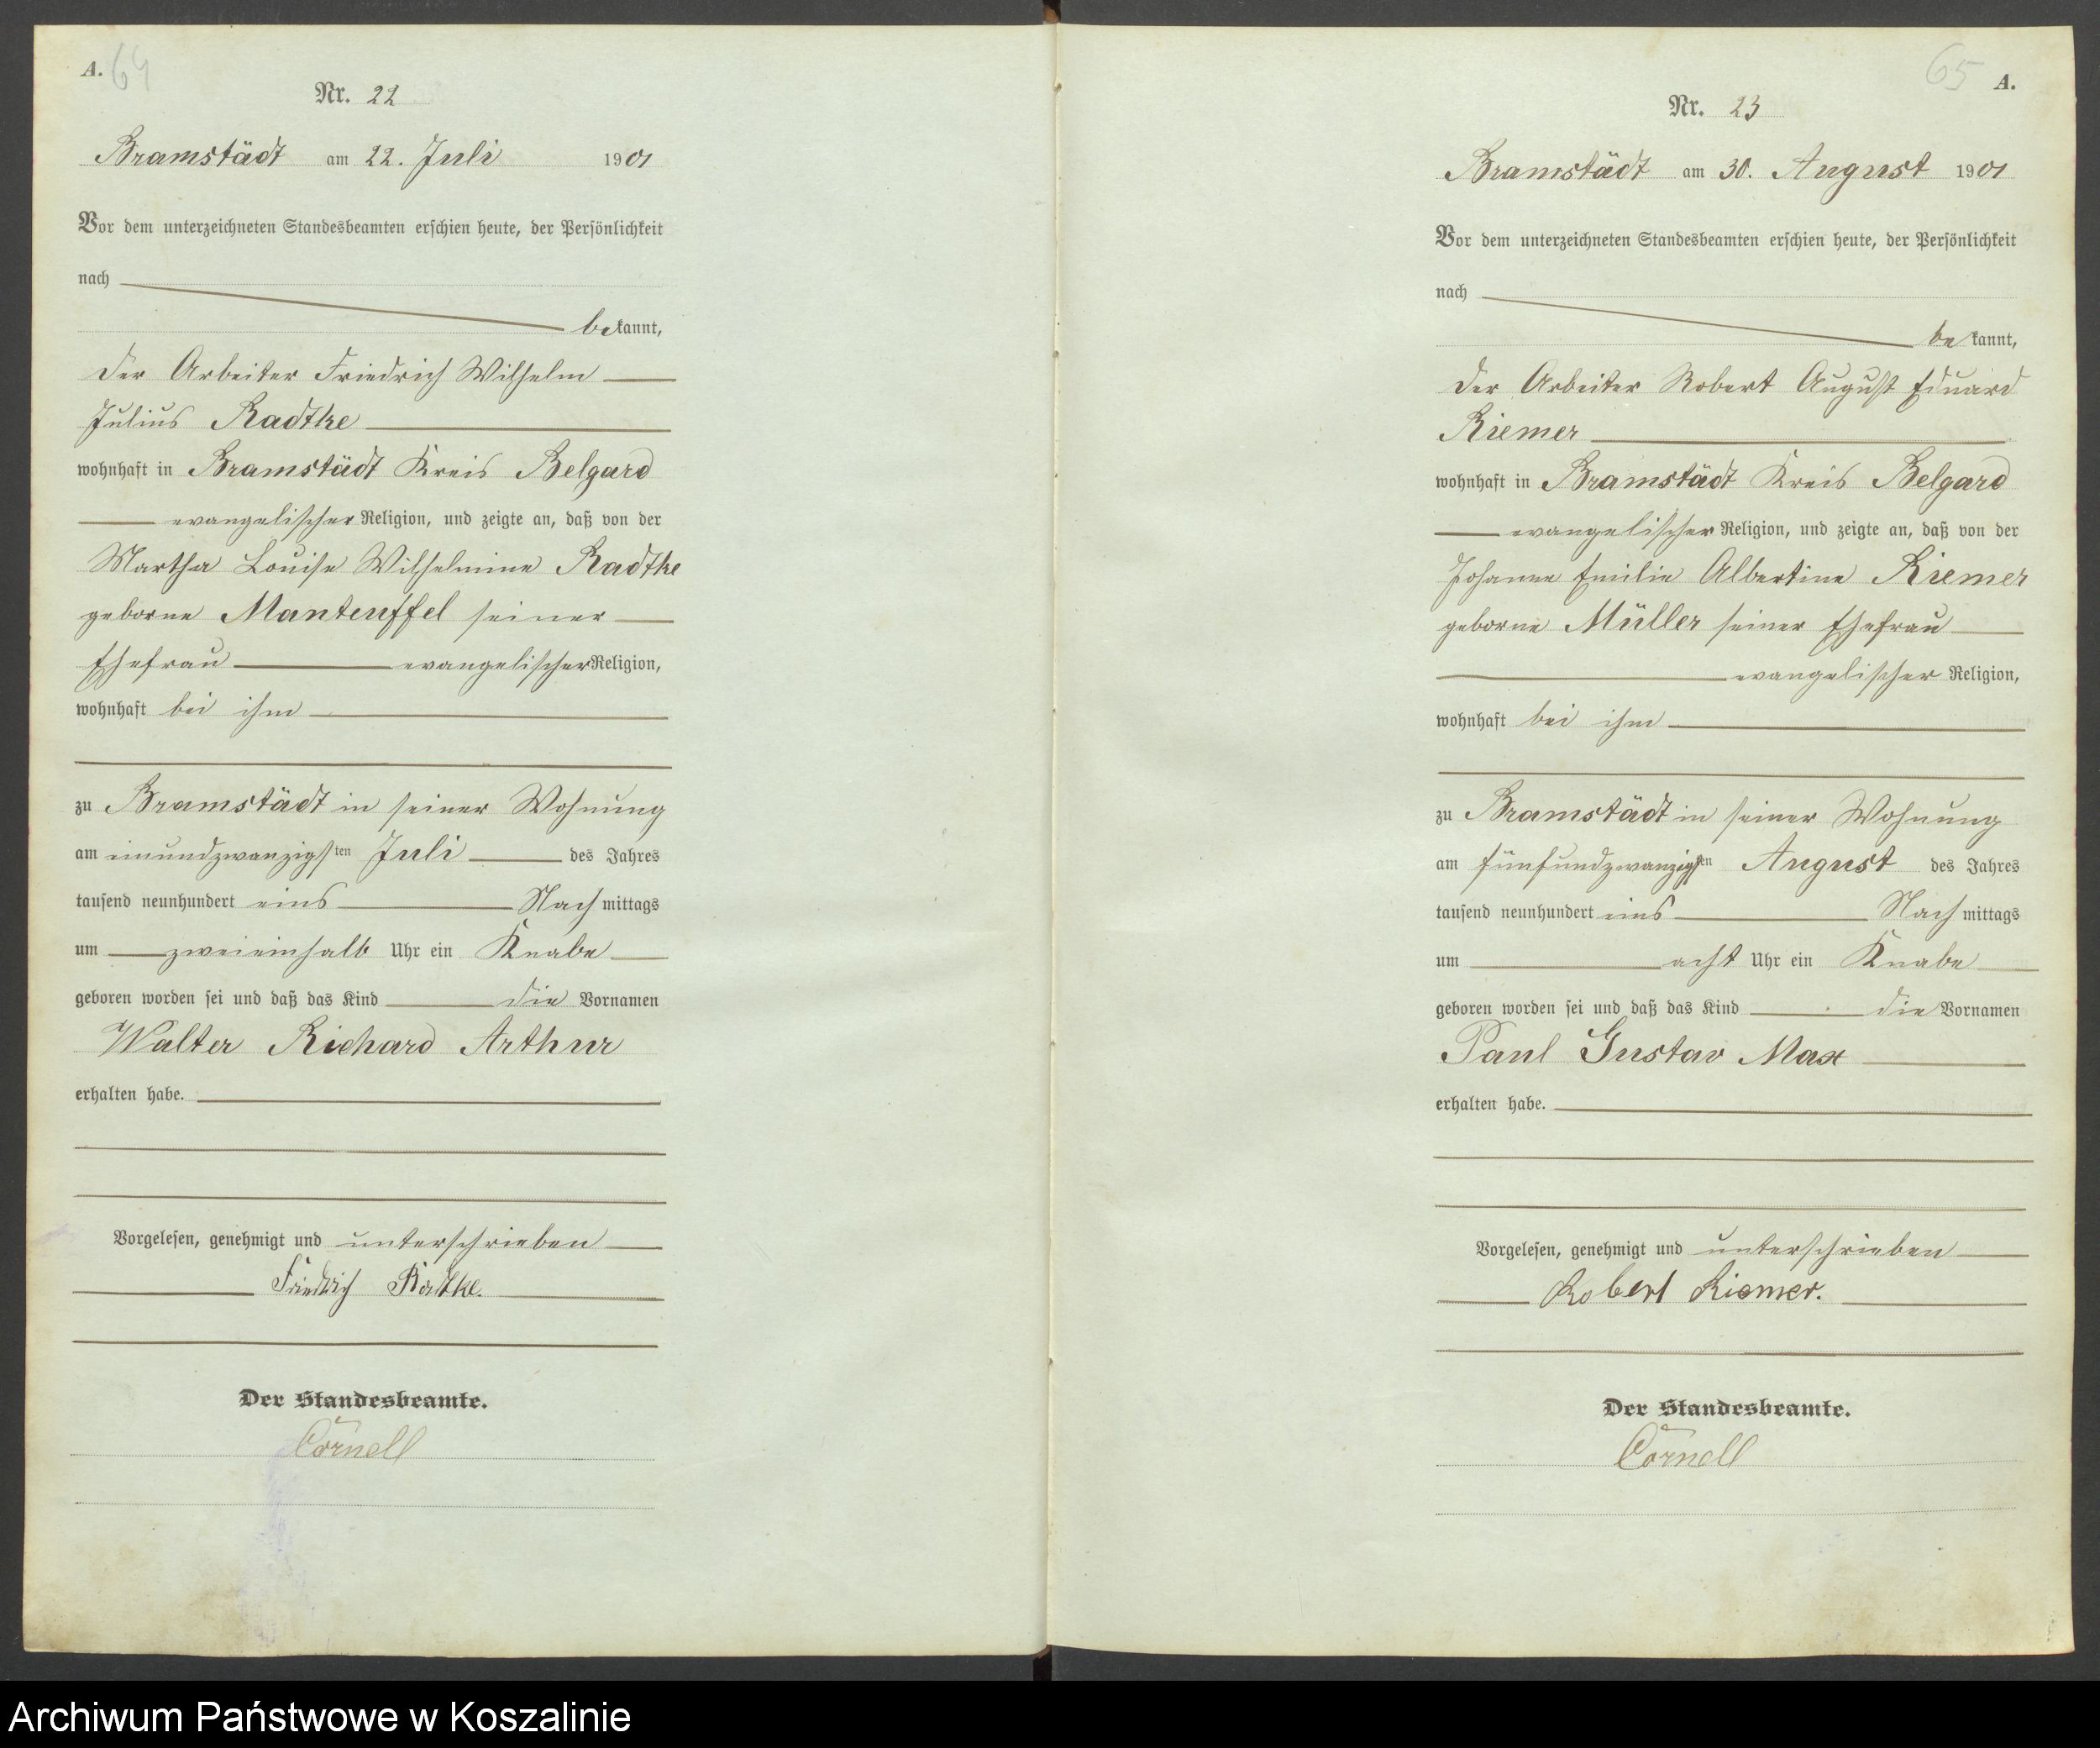 A. 64
Nr. 22
Bramstädt am 22. Juli 1901
Vor dem unterzeichneten Standesbeamten erschien heute, der Persönlichkeit
nach
bekannt,
der Arbeiter Friedrich Wilhelm
Julius Radtke
wohnhaft in Bramstädt Kreis Belgard
evangelischer Religion, und zeigte an, daß von der
Martha Louise Wilhelmine Radtke
geborne Manteuffel seiner
Ehefrau evangelischer Religion,
wohnhaft bei ihm
zu Bramstädt in seiner Wohnung
am einundzwanzigsten Juli des Jahres
tausend neunhundert eins Nachmittags
um zweieinhalb Uhr ein Knabe
geboren worden sei und daß das Kind die Vornamen
Walter Richard Arthur
erhalten habe.
Vorgelesen, genehmigt und unterschrieben
Friedrich Radtke.
Der Standesbeamte.
Cörnell
65 A.
Nr. 23
Bramstädt am 30. August 1901
Vor dem unterzeichneten Standesbeamten erschien heute, der Persönlichkeit
nach
bekannt,
der Arbeiter Robert August Eduard
Riemer
wohnhaft in Bramstädt Kreis Belgard
evangelischer Religion, und zeigte an, daß von der
Johanne Emilie Albertine Riemer
geborne Müller seiner Ehefrau
evangelischer Religion,
wohnhaft bei ihm
zu Bramstädt in seiner Wohnung
am fünfundzwanzigsten August des Jahres
tausend neunhundert eins Nachmittags
um acht Uhr ein Knabe
geboren worden sei und daß das Kind die Vornamen
Paul Gustav Max
erhalten habe.
Vorgelesen, genehmigt und unterschrieben
Robert Riemer.
Der Standesbeamte.
Cörnell
Archiwum Państwowe w Koszalinie